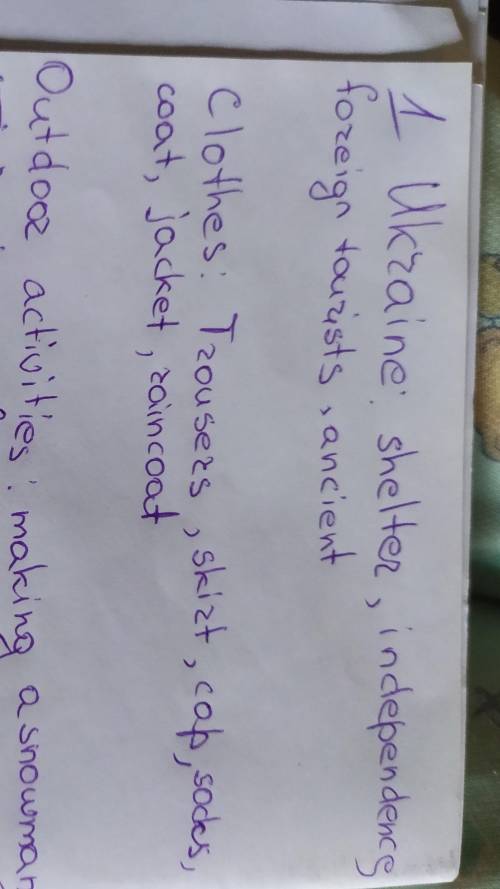 1 Ukraine: shelter, independency
foreign tourists, ancient
Clothes: Trousers, skirt, cap, socks,
coat, jacket, raincoat
Outdoor activities: making a snowman